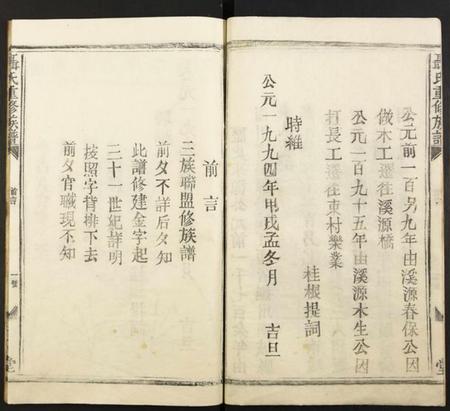 聶氏重修族譜
公元前一百另九年由溪源春保公因
做木工遷往溪源橋
公元一百九十五年由溪源木生公因
打長工遷往東村樂業
桂根提詞
時維
公元一九九四年甲戌孟冬月 吉旦
前言
三族聯盟修族譜
前夕不詳后夕知
此譜修建金字起
三十一世紀詳明
按照字背排下去
前夕官職現不知
聶氏重修族譜
前言
一號
堂
堂